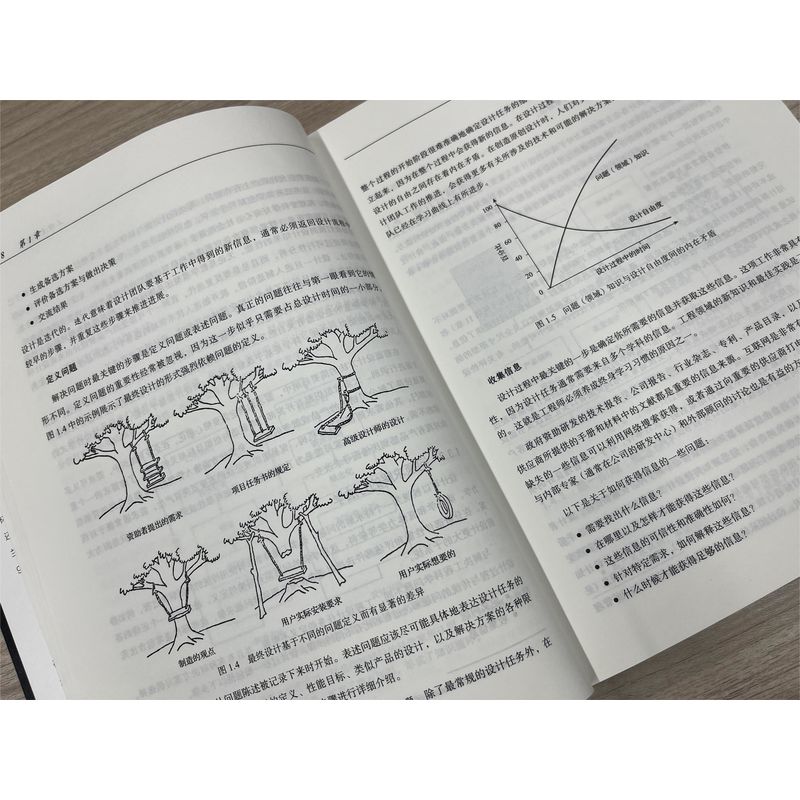 8 第1章
• 生成备选方案
• 评价备选方案与做出决策
• 交流结果
设计是迭代的。迭代意味着设计团队要基于工作中得到的新信息，通常必须返回设计流程中
较早的步骤，并重复这些步骤来推进进展。
定义问题
解决问题时最关键的步骤是定义问题或表述问题。真正的问题往往与第一眼看到它的情
形不同。定义问题的重要性经常被忽视，因为这一步似乎只需要占总设计时间的一小部分。
图1.4中的示例展示了最终设计的形式强烈依赖问题的定义。
资助者提出的需求
项目任务书的规定
高级设计师的设计
制造的观点
用户实际安装要求
用户实际想要的
图1.4 最终设计基于不同的问题定义而有显著的差异
问题陈述被记录下来时开始。表述问题应该尽可能具体地表达设计任务的
的定义、性能目标、类似产品的设计，以及解决方案的各种限
骤进行详细介绍。
除了最常规的设计任务外，在
整个过程的开始阶段很难准确地确定设计任务的
立起来，因为在整个过程中会获得新的信息。在设计过程
设计的自由之间存在着内在矛盾。在创造原创设计时，人们对
计团队工作的推进，会获得更多有关所涉及的技术和可能的解决方案
队已经在学习曲线上有所进步。
100
80
60
40
20
0
百分比
问题（领域）知识
设计自由度
设计过程中的时间
图1.5 问题（领域）知识与设计自由度间的内在矛盾
收集信息
设计过程中最关键的一步是确定你所需要的信息并获取这些信息。这项工作非常具
性，因为设计任务通常需要来自多个学科的信息。工程领域的新知识和最佳实践是
的。这就是工程师必须养成终身学习习惯的原因之一。
政府资助研发的技术报告、公司报告、行业杂志、专利、产品目录，以及
供应商所提供的手册和材料中的文献都是重要的信息来源。互联网是非常
缺失的一些信息可以利用网络搜索获得，或者通过向重要的供应商打
与内部专家（通常在公司的研发中心）和外部顾问的讨论也是有益的方
以下是关于如何获得信息的一些问题：
• 需要找出什么信息？
• 在哪里以及怎样才能获得这些信息？
• 这些信息的可信性和准确性如何？
• 针对特定需求，如何解释这些信息？
• 什么时候才能获得足够的信息？